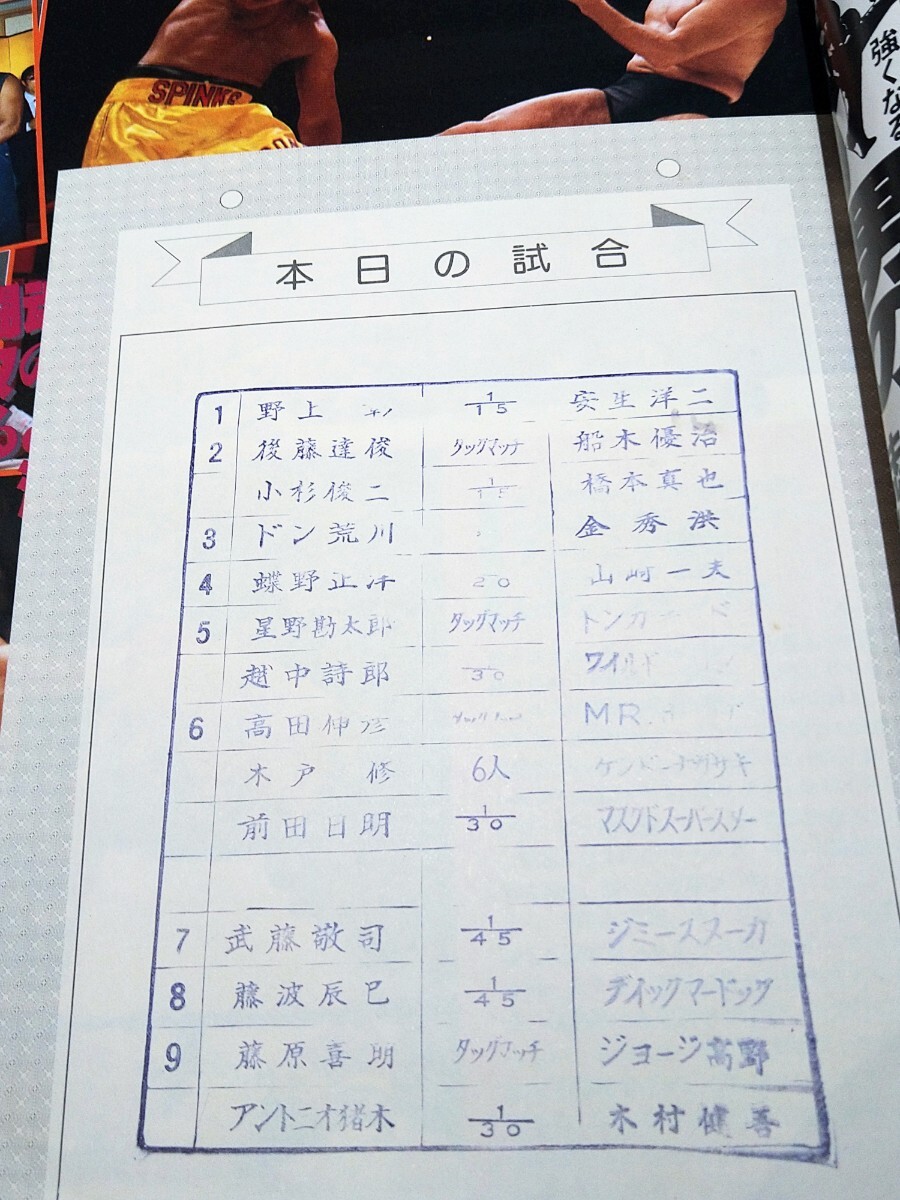 SPINKS
強くなる
本日の試合
1 野上 1/15 安生洋二
2 後藤達俊 タッグマッチ 船木優治
小杉俊二 1/15 橋本真也
3 ドン荒川 金秀洪
4 蝶野正洋 20 山崎一夫
5 星野勘太郎 タッグマッチ トンガ
越中詩郎 30 ワイルド
6 高田伸彦 MR.
木戸修 6人 ケンドーナガサキ
前田日明 1/30 マスクドスーパースター
7 武藤敬司 1/45 ジミースヌーカ
8 藤波辰巳 1/45 ディックマードック
9 藤原喜明 タッグマッチ ジョージ高野
アントニオ猪木 1/30 木村健吾